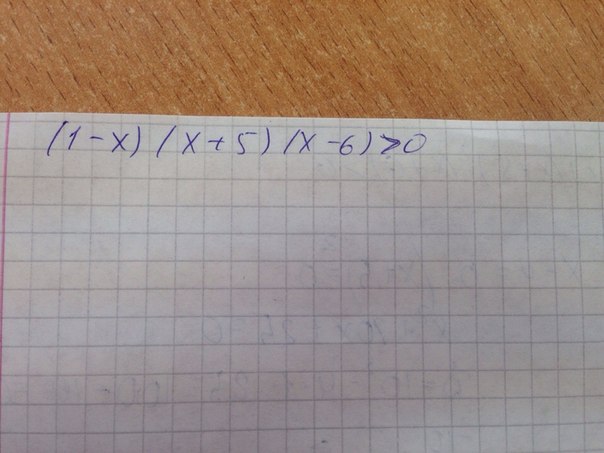 (1-x) (x+5) (x-6)>0